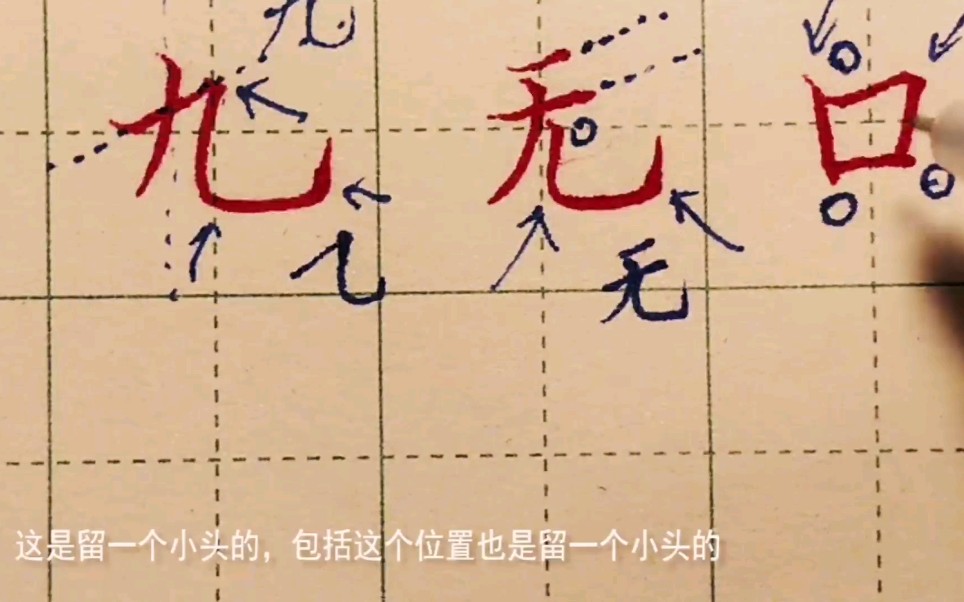 九
九 无 口
乁 无
这是留一个小头的，包括这个位置也是留一个小头的